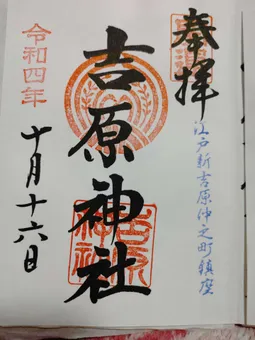 奉拝
江戸新吉原仲之町鎮座
吉原神社
令和四年
十月十六日